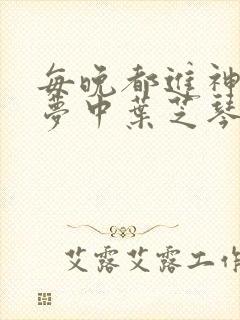 每晚都進神
夢中葉芝琴
艾露艾露工作